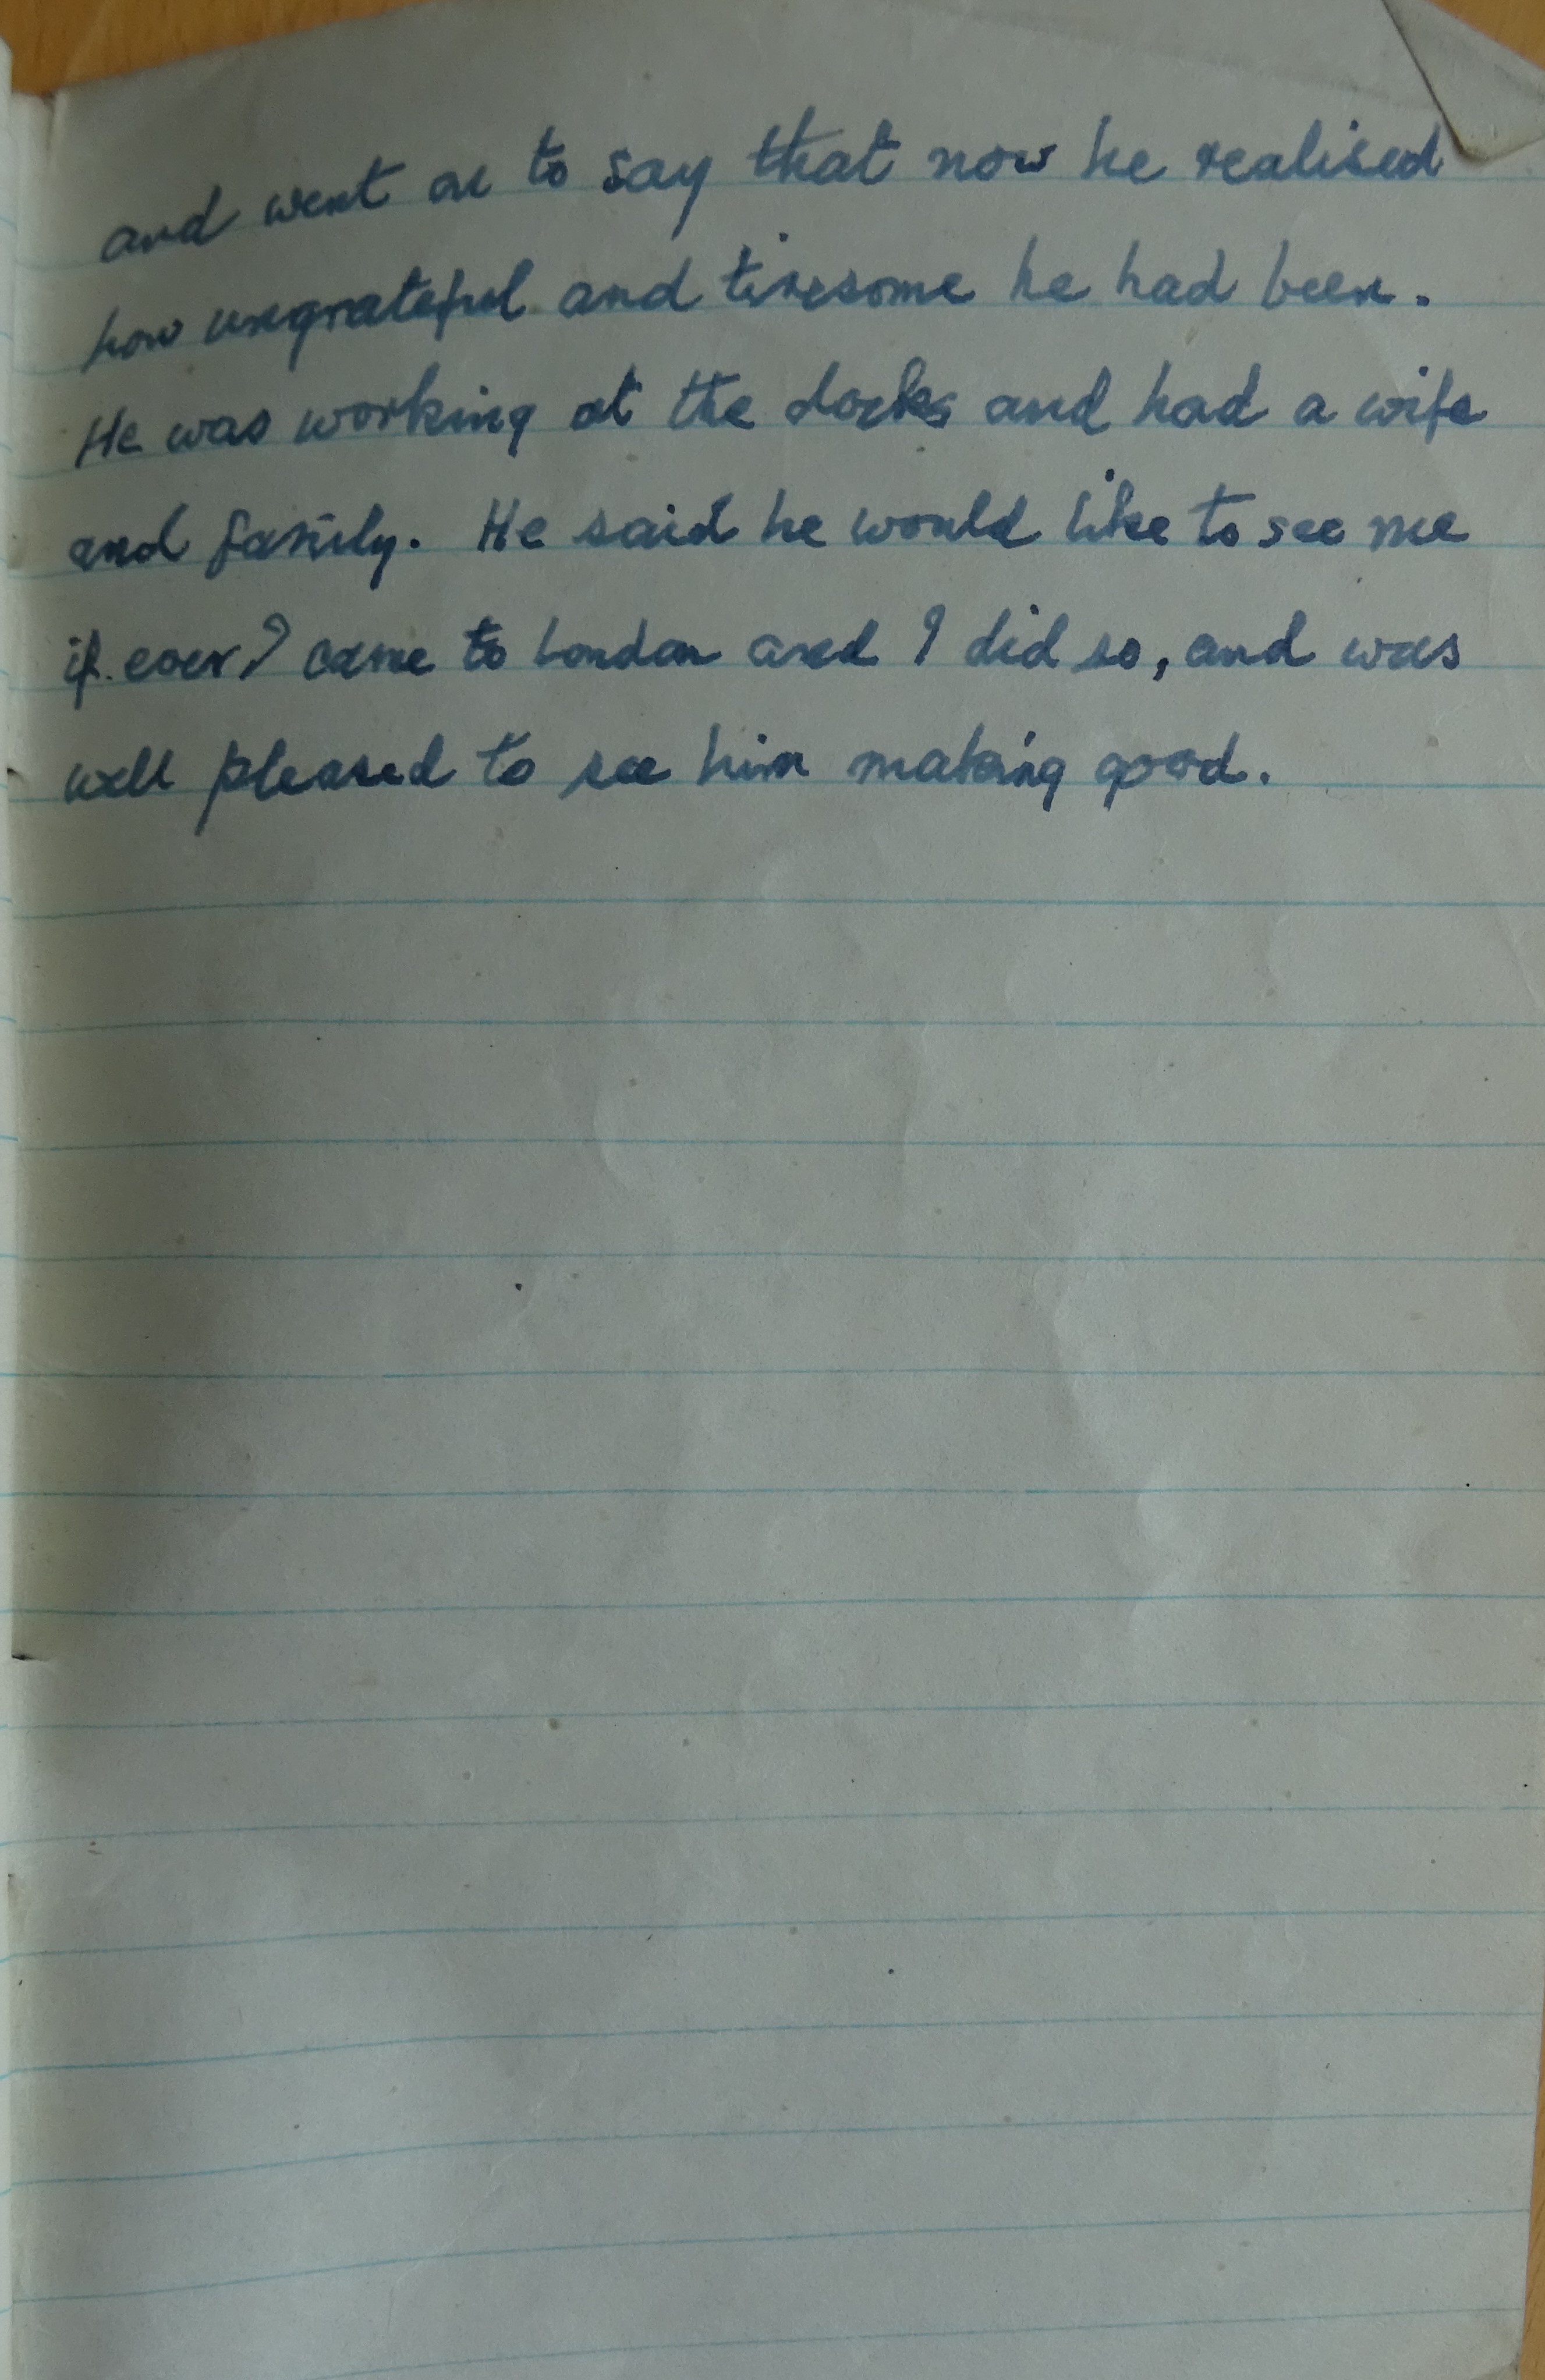 and went on to say that now he realised
how ungrateful and tiresome he had been.
He was working at the docks and had a wife
and family. He said he would like to see me
if ever I came to London and I did so, and was
well pleased to see him making good.